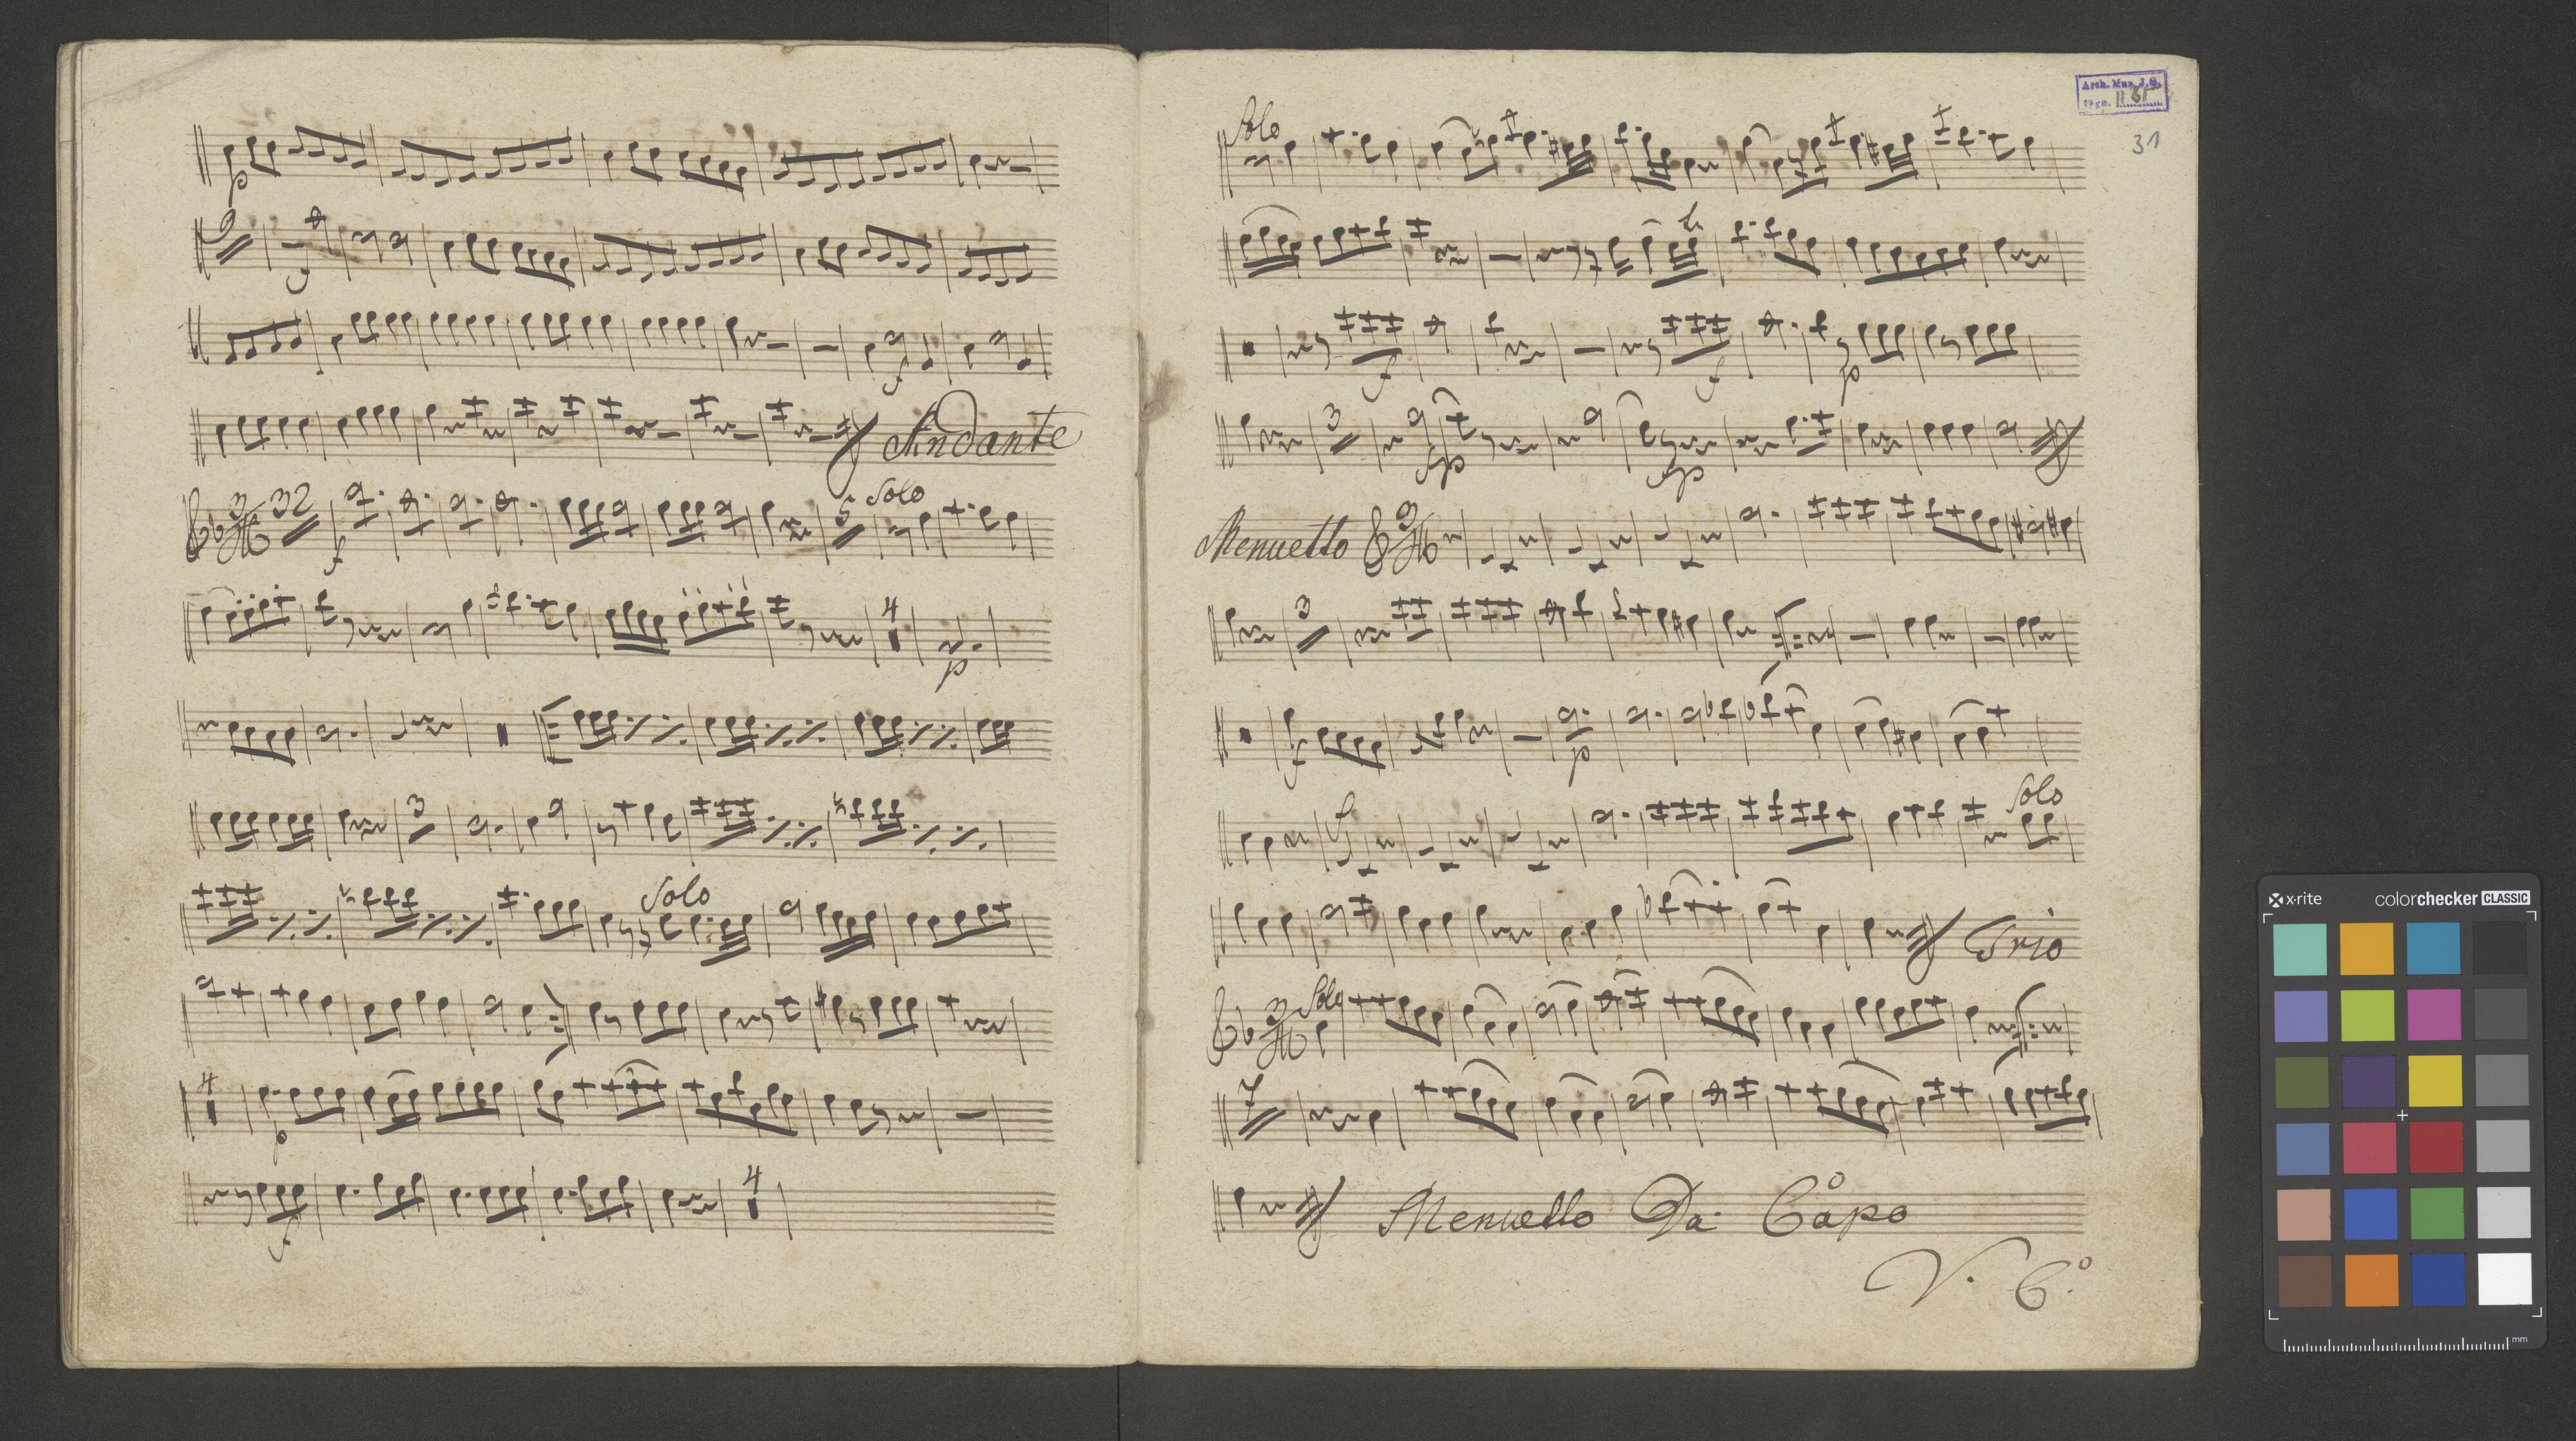 p
9
f
f
Andante
3 32 5 Solo
f
4
p
3
Solo
4
p
4
f
Arch. Mus. J.G.
Sygn. II
31
Solo
tr
f f p
3
fp fp
Menuetto 3
3
f p
f Solo
Trio
3 Solo
7
Menuetto Da Cåpo
V. Cº
x-rite colorchecker CLASSIC
mm